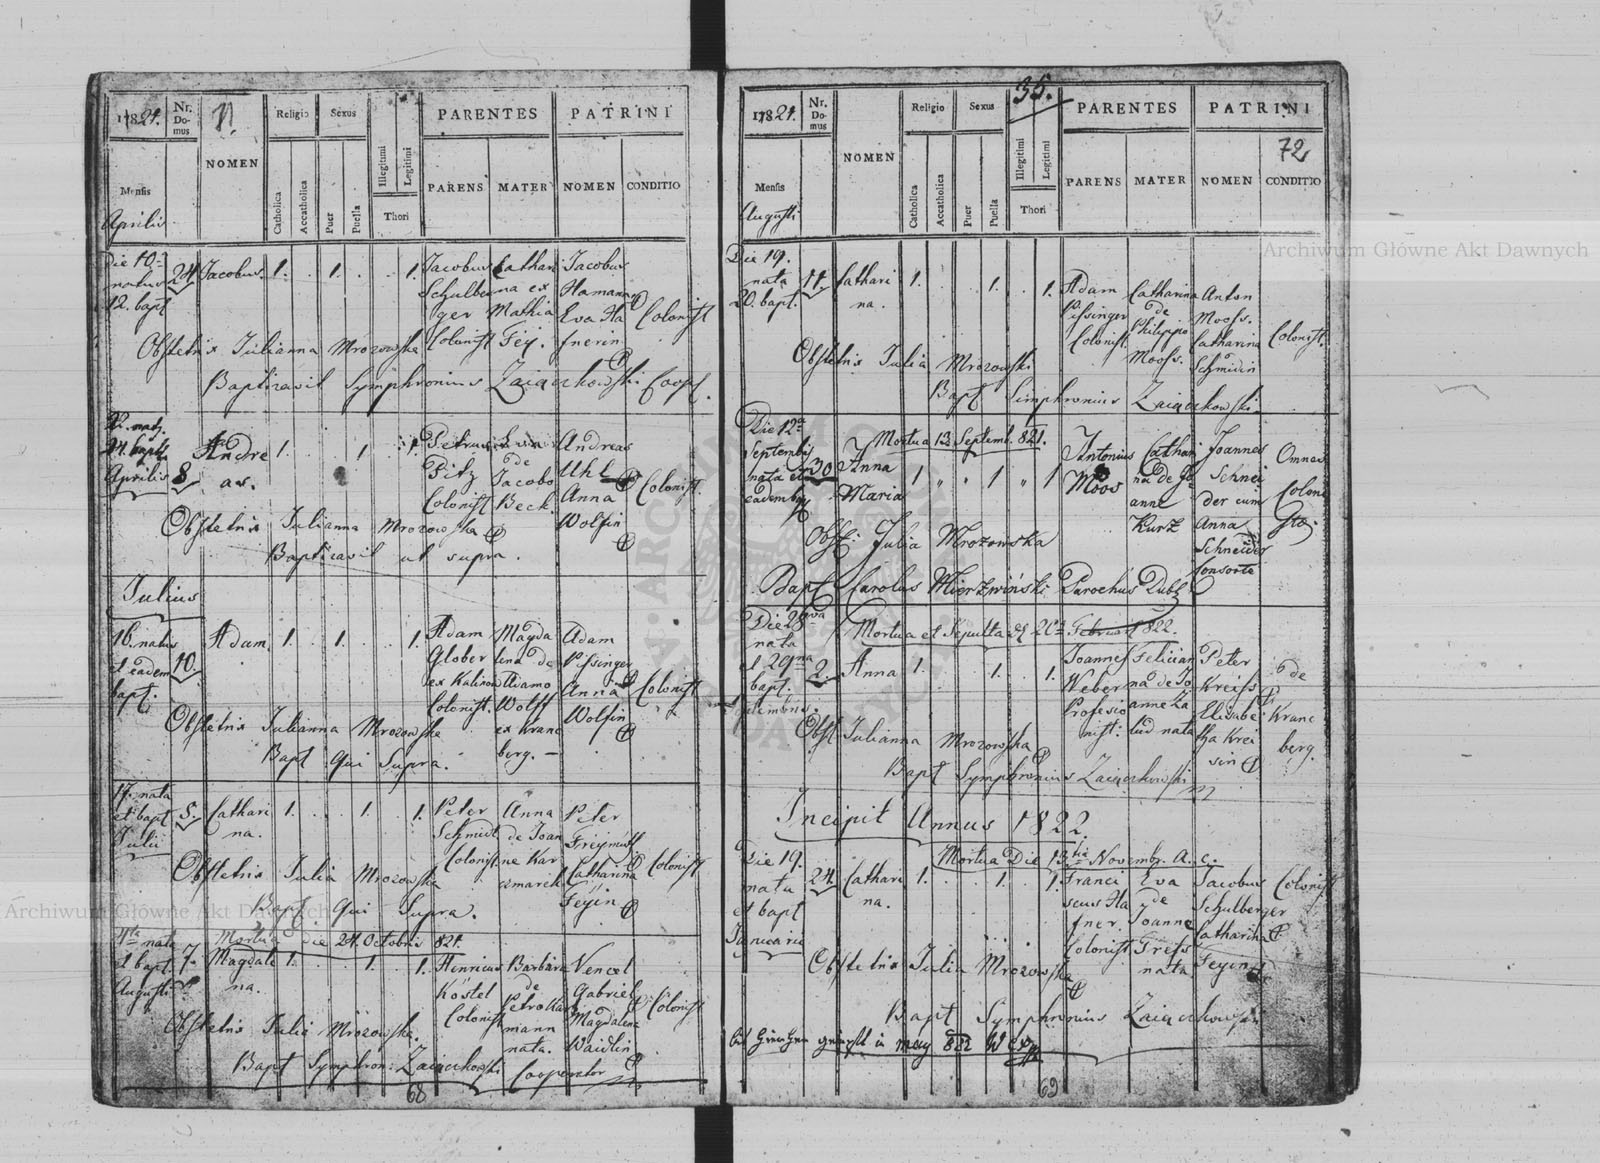 1821.
Nr. Domus
NOMEN
Religio
Sexus
Catholica
Accatholica
Puer
Puella
Illegitimi
Legitimi
Thori
PARENTES
PATRINI
PARENS
MATER
NOMEN
CONDITIO
Mensis
Aprilis
Die 10
natus
12. bapt
24
Jacobus.
1. . 1. . . 1.
Jacobus
Schulber
ger
Colonist
Cathari
na ex
Mathia
Fey.
Jacobus
Hamann
Eva Ha
fnerin
Colonist
Obstetrix Julianna Mrozowska
Baptizavit Symphronius Zaiączkowski Coop.
22. nat.
24. bapt.
Aprilis
8
Andre
as.
1. 1 1.
Petrus
Pitz
Colonist
Eva
de
Jacobo
Beck.
Andreas
Uhl
Anna
Wolfin
Colonist.
Obstetrix Julianna Mrozowska
Baptizavit ut supra.
Julius
16. natus
et eadem
bapt.
10.
Adam.
1. . 1. . . 1.
Adam
Glober
ex Kalinow
Colonist.
Magda
lena de
Adamo
Wolff
ex Kranc
berg.
Adam
Pissinger
Anna
Wolfin
Colonist
Obstetrix Julianna Mrozowska
Bapt Qui Supra.
17. nata
et bapt
Julii
5.
Cathari
na.
1. . . 1. . 1.
Peter
Schmidt
Colonist
Anna
de Joan
ne Kar
czmarek
Peter
Freymuth
Catharina
Feyin
Colonist
Obstetrix Julia Mrozowska
Bapt Qui Supra.
Mortua die 24. Octobris 821.
4ta nata
et bapt.
Augusti
7.
Magdale
na.
1. . . 1. . 1.
Henricus
Köstel
Colonist
Barbara
de
Petro
mann
nata.
Vencel
Gabriel
Magdalena
Waidlin
Colonist
Obstetrix Julia Mrozowska.
Bapt Symphron: Zaiączkowski Cooperator
68
35.
72
1821.
Nr. Domus
NOMEN
Religio
Sexus
Catholica
Accatholica
Puer
Puella
Illegitimi
Legitimi
Thori
PARENTES
PATRINI
PARENS
MATER
NOMEN
CONDITIO
Mensis
Augusti
Die 19.
nata
20. bapt.
11.
Cathari
na.
1. . . 1. . 1.
Adam
Pissinger
Colonist.
Catharina
de
Philippo
Mooss.
Anton
Mooss.
Catharina
Schmidin
Colonist.
Obstetrix Julia Mrozowski
Bapt Simphronius Zaiączkowski
Die 12a
Septembris
nata et
eadem bapt
30
Mortua 13 Septemb. 821.
Anna
Maria
1 " " 1 " 1
Antonius
Moos
Cathari
na de Jo
anne
Kurz
Joannes
Schnei
der cum
Anna
Schneider
consorte
Omnes
Coloni
stae.
Obst: Julia Mrozowska
Bapt Carolus Mierzwiński Parochus Dubl
Die 28va
nata
et 29na
bapt.
2.
Mortua et Sepulta Februar 1822.
Anna
1. . . 1. . 1.
Joannes
Weber
Profesio
nist:
Felician
na de Jo
anne Za
lud nata
Peter
Kreiss
Elisabe
tha Krei
sin
de
Kranc
berg.
Obst Julianna Mrozowska
Bapt Symphronius Zaiączkowski
Incipit Annus 1822.
Mortua Die 13tia Novembr. A. c.
Die 19.
nata
et bapt
Januarii
24.
Cathari
na.
1. . . 1. . 1.
Franci
scus Ha
fner
Colonist
Eva
de
Joanne
Trefs
nata
Jacobus
Schulberger
Catharina
Feyin
Colonist
Obstetrix Julia Mrozowska
Bapt Symphronius Zaiączkowski
may 822
69
Archiwum Główne Akt Dawnych
Archiwum Główne Akt Dawnych